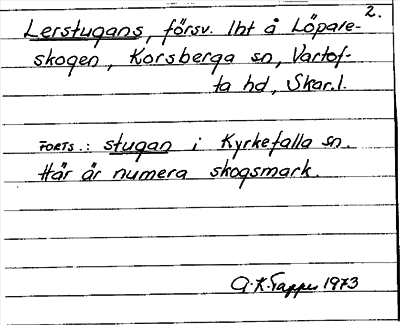 2.
Lerstugans, försv. lht å Löpare-
skogen, Korsberga sn, Vartof-
ta hd, Skar.l.
FORTS.: stugan i Kyrkefalla sn.
Här är numera skogsmark.
G.K. Tapper 1973